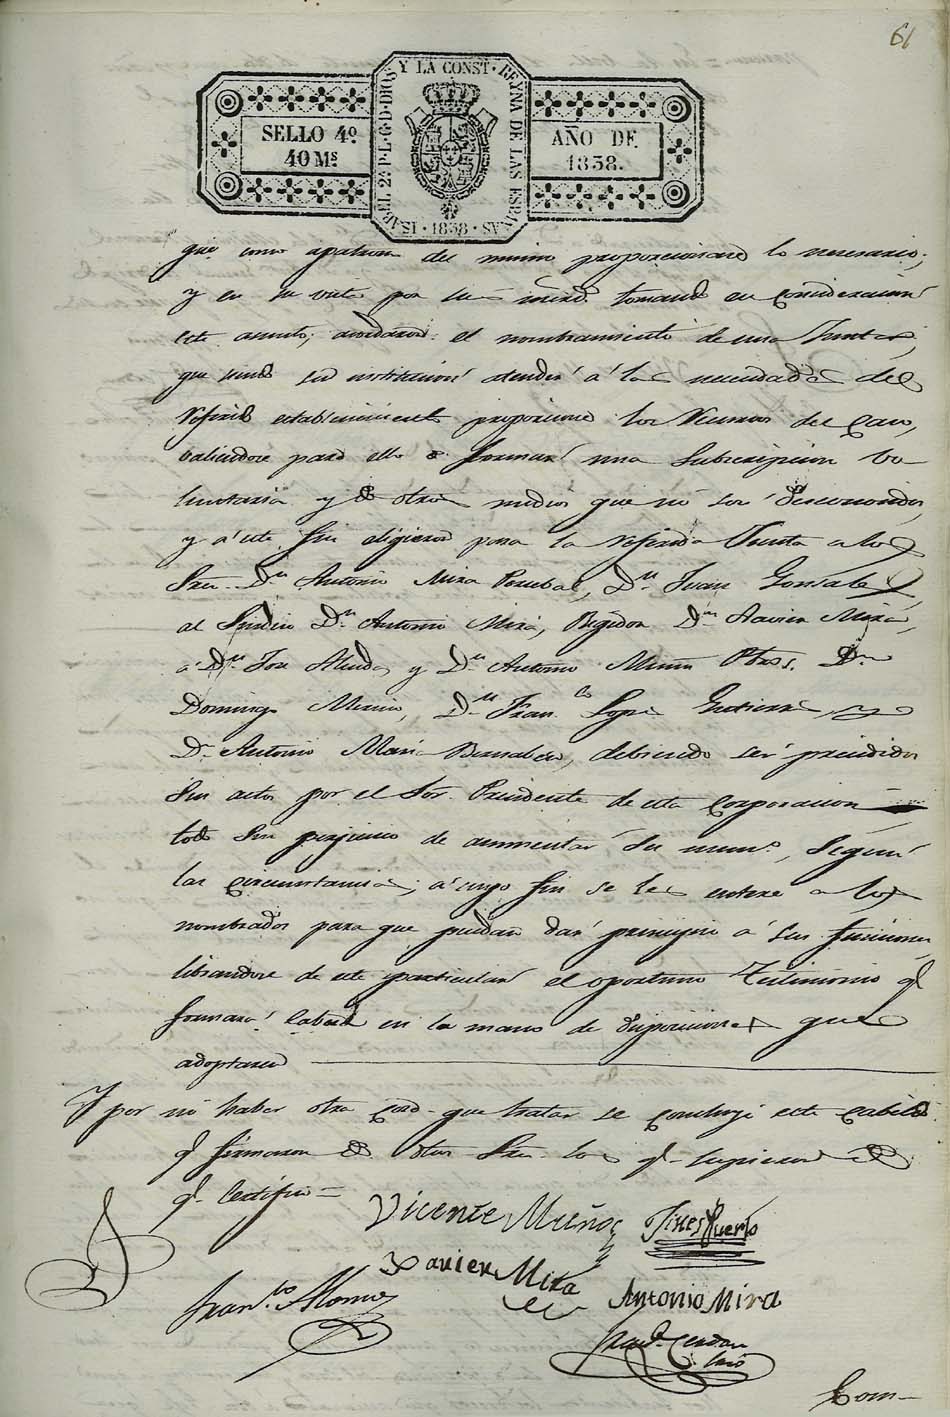 61
SELLO 4º.
40 Ms
ISABEL 2ª P. L. G. D. DIOS Y LA CONST. REYNA DE LAS ESPAÑAS
1838
AÑO DE
1838.
que como del mismo proporcionare lo necesario;
y en su vista por sus tomando en consideracion
este asunto; acordaron el nombramiento de una Junta,
que su institucion atender á las necesidades del
establecimiento proporcione los Recursos del caso,
valiendose para ello de formar una Subscripcion Vo-
luntaria y de otros medios que no son desconocidos,
y á este fin eligieron para la referida Junta a los
Sres. Dn. Antonio Mira Dn. Juan Gonsalez
al Sindico Dn. Antonio Mira, Regidor Dn. Xavier Mira,
a Dn. Jose y Dn. Antonio Pbros. Dn
Domingo Dn. Franco Lopez Gutierrez, y
Dn. Antonio Maria Bernabeu, debiendo ser presididos
sus actos por el Sor. Presidente de esta Corporacion
todo sin perjuicio de aumentar su numo, segun
las circunstancias; á cuyo fin se les entere a los
nombrados para que puedan dar principio á sus funciones
librandose de este particular el oportuno Testimonio q
formará cabeza en la mano de disposiciones que
adoptaren
Y por no haber otra cosa que tratar se concluyó este Cabildo
q firmaron dhos Sres. los q. supieron de
q. Certifico =
Vicente Muñoz Gines Puerto
Xavier Mira
Antonio Mira
Franco Alonso
Cerdan
Com-